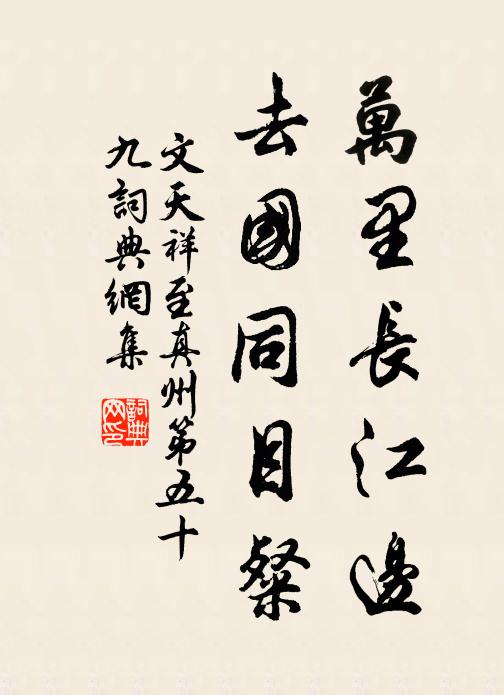 萬里長江邊
去國同目粲
文天祥至真州第五十
九詞典網集
詞典
网印